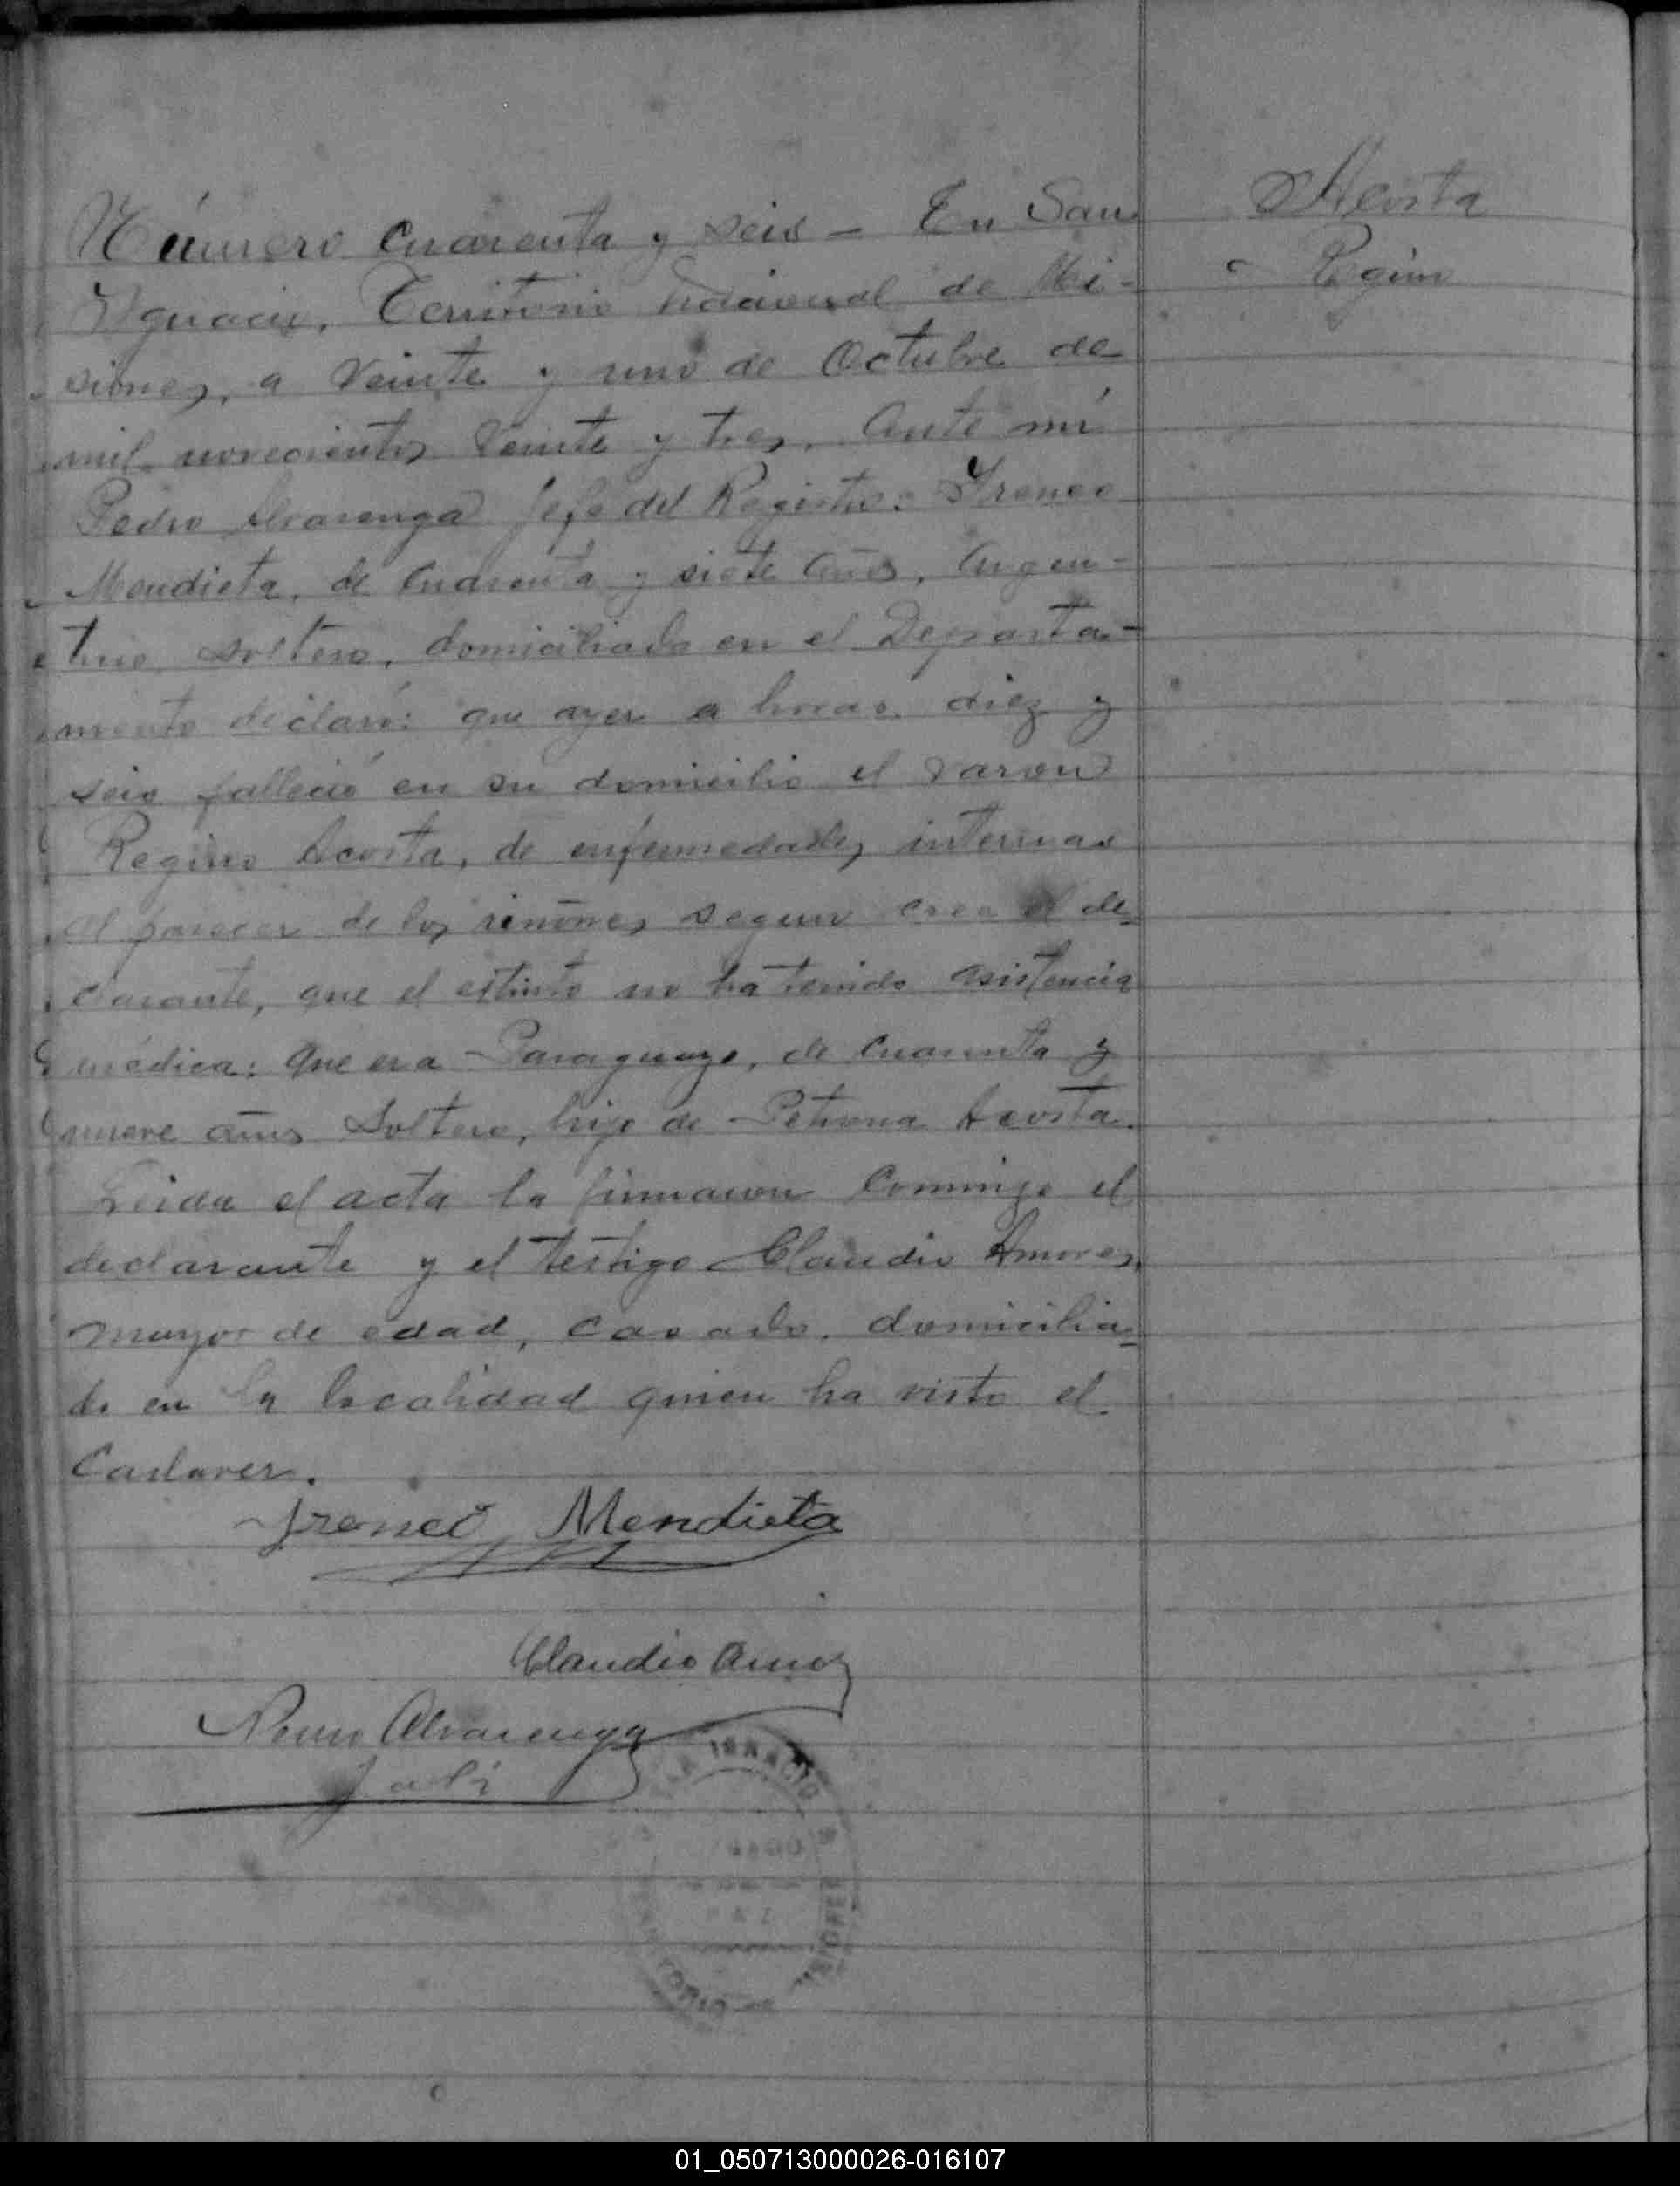 Acosta
Regino
Número cuarenta y seis – En San
Ygnacio, Territorio Nacional de Mi-
siones, a veinte y uno de Octubre de
mil novecientos veinte y tres. Ante mí
Pedro Alvarenga Jefe del Registro: Yreneo
Mendieta, de cuarenta y siete años, Argen-
tino soltero, domiciliado en el Departa-
mento declaró: que ayer a horas diez y
seis falleció en su domicilio el varon
Regino Acosta, de enfermedades internas
al parecer de los riñones segun cree el de-
clarante, que el estinto no ha tenido asistencia
médica: que era Paraguayo, de cuarenta y
nueve años soltero, hijo de Petrona Acosta.
Leida el acta la firmaron conmigo el
declarante y el testigo Claudio Amores,
mayor de edad, casado, domicilia-
do en la localidad quien ha visto el
cadaver.
Ireneo Mendieta
Claudio
Alvarenga
IGNACIO
01_050713000026-016107